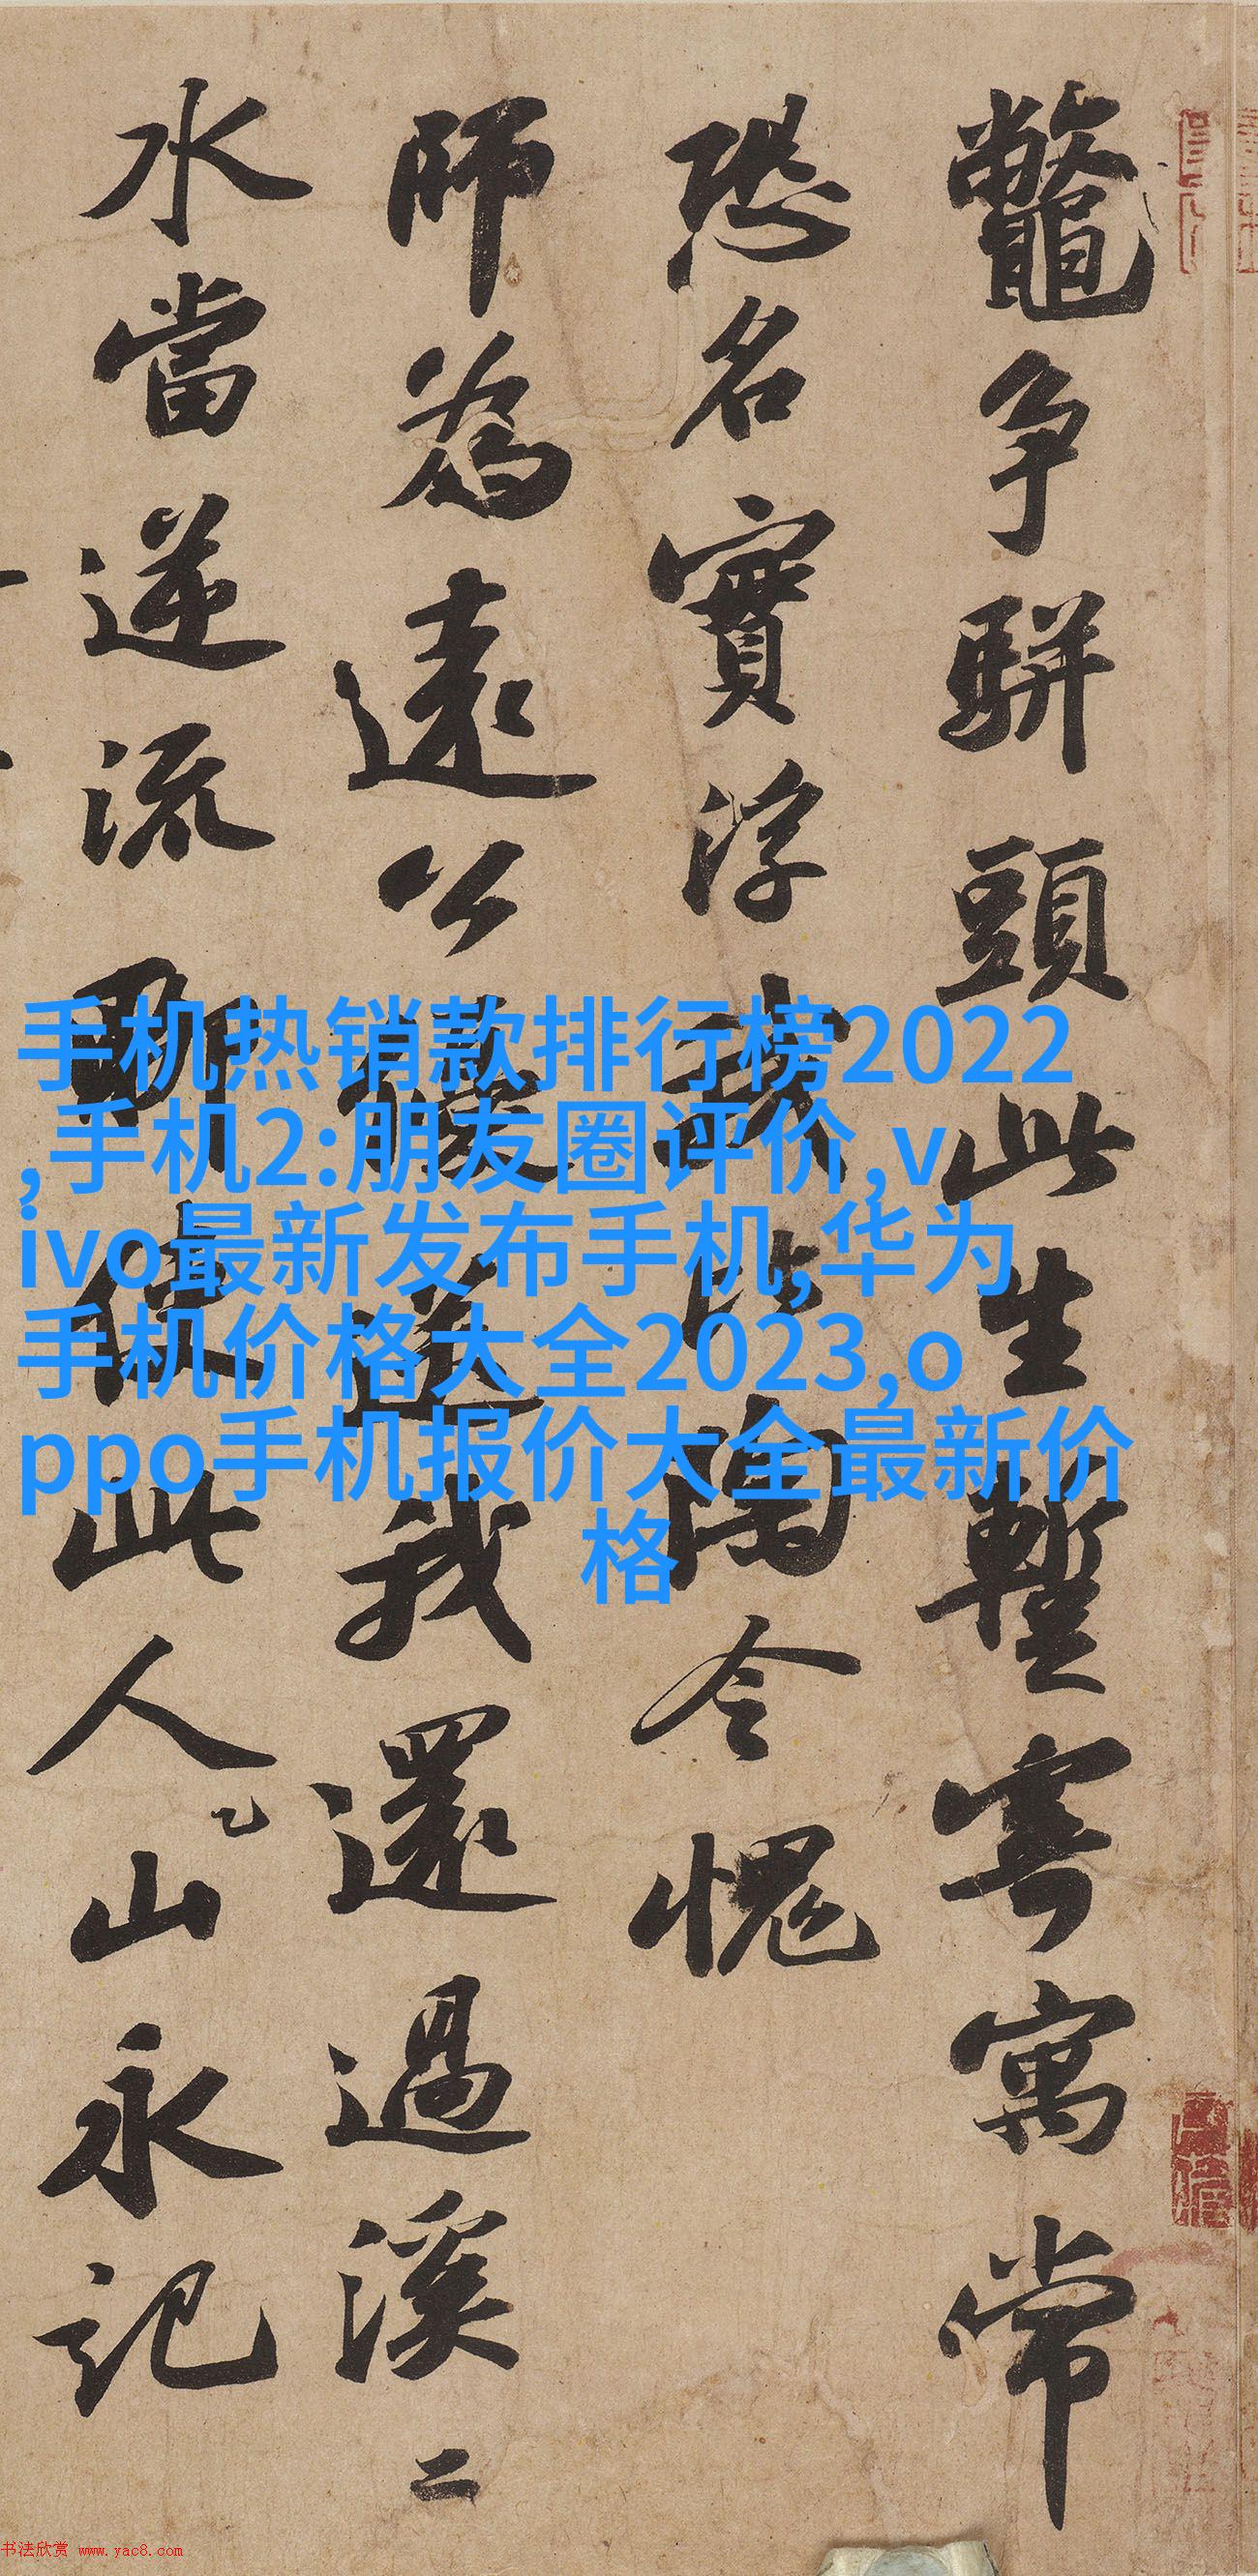 鼈争駢頭此生暫寄寓常
恐名實浮我比陶令愧
師為遠公優送我還過溪二
水當逆流聊使此人山永記
手机热销款排行榜2022
,手机2:朋友圈评价,v
ivo最新发布手机,华为
手机价格大全2023,o
ppo手机报价大全最新价
格
书法欣赏 www.yac8.com